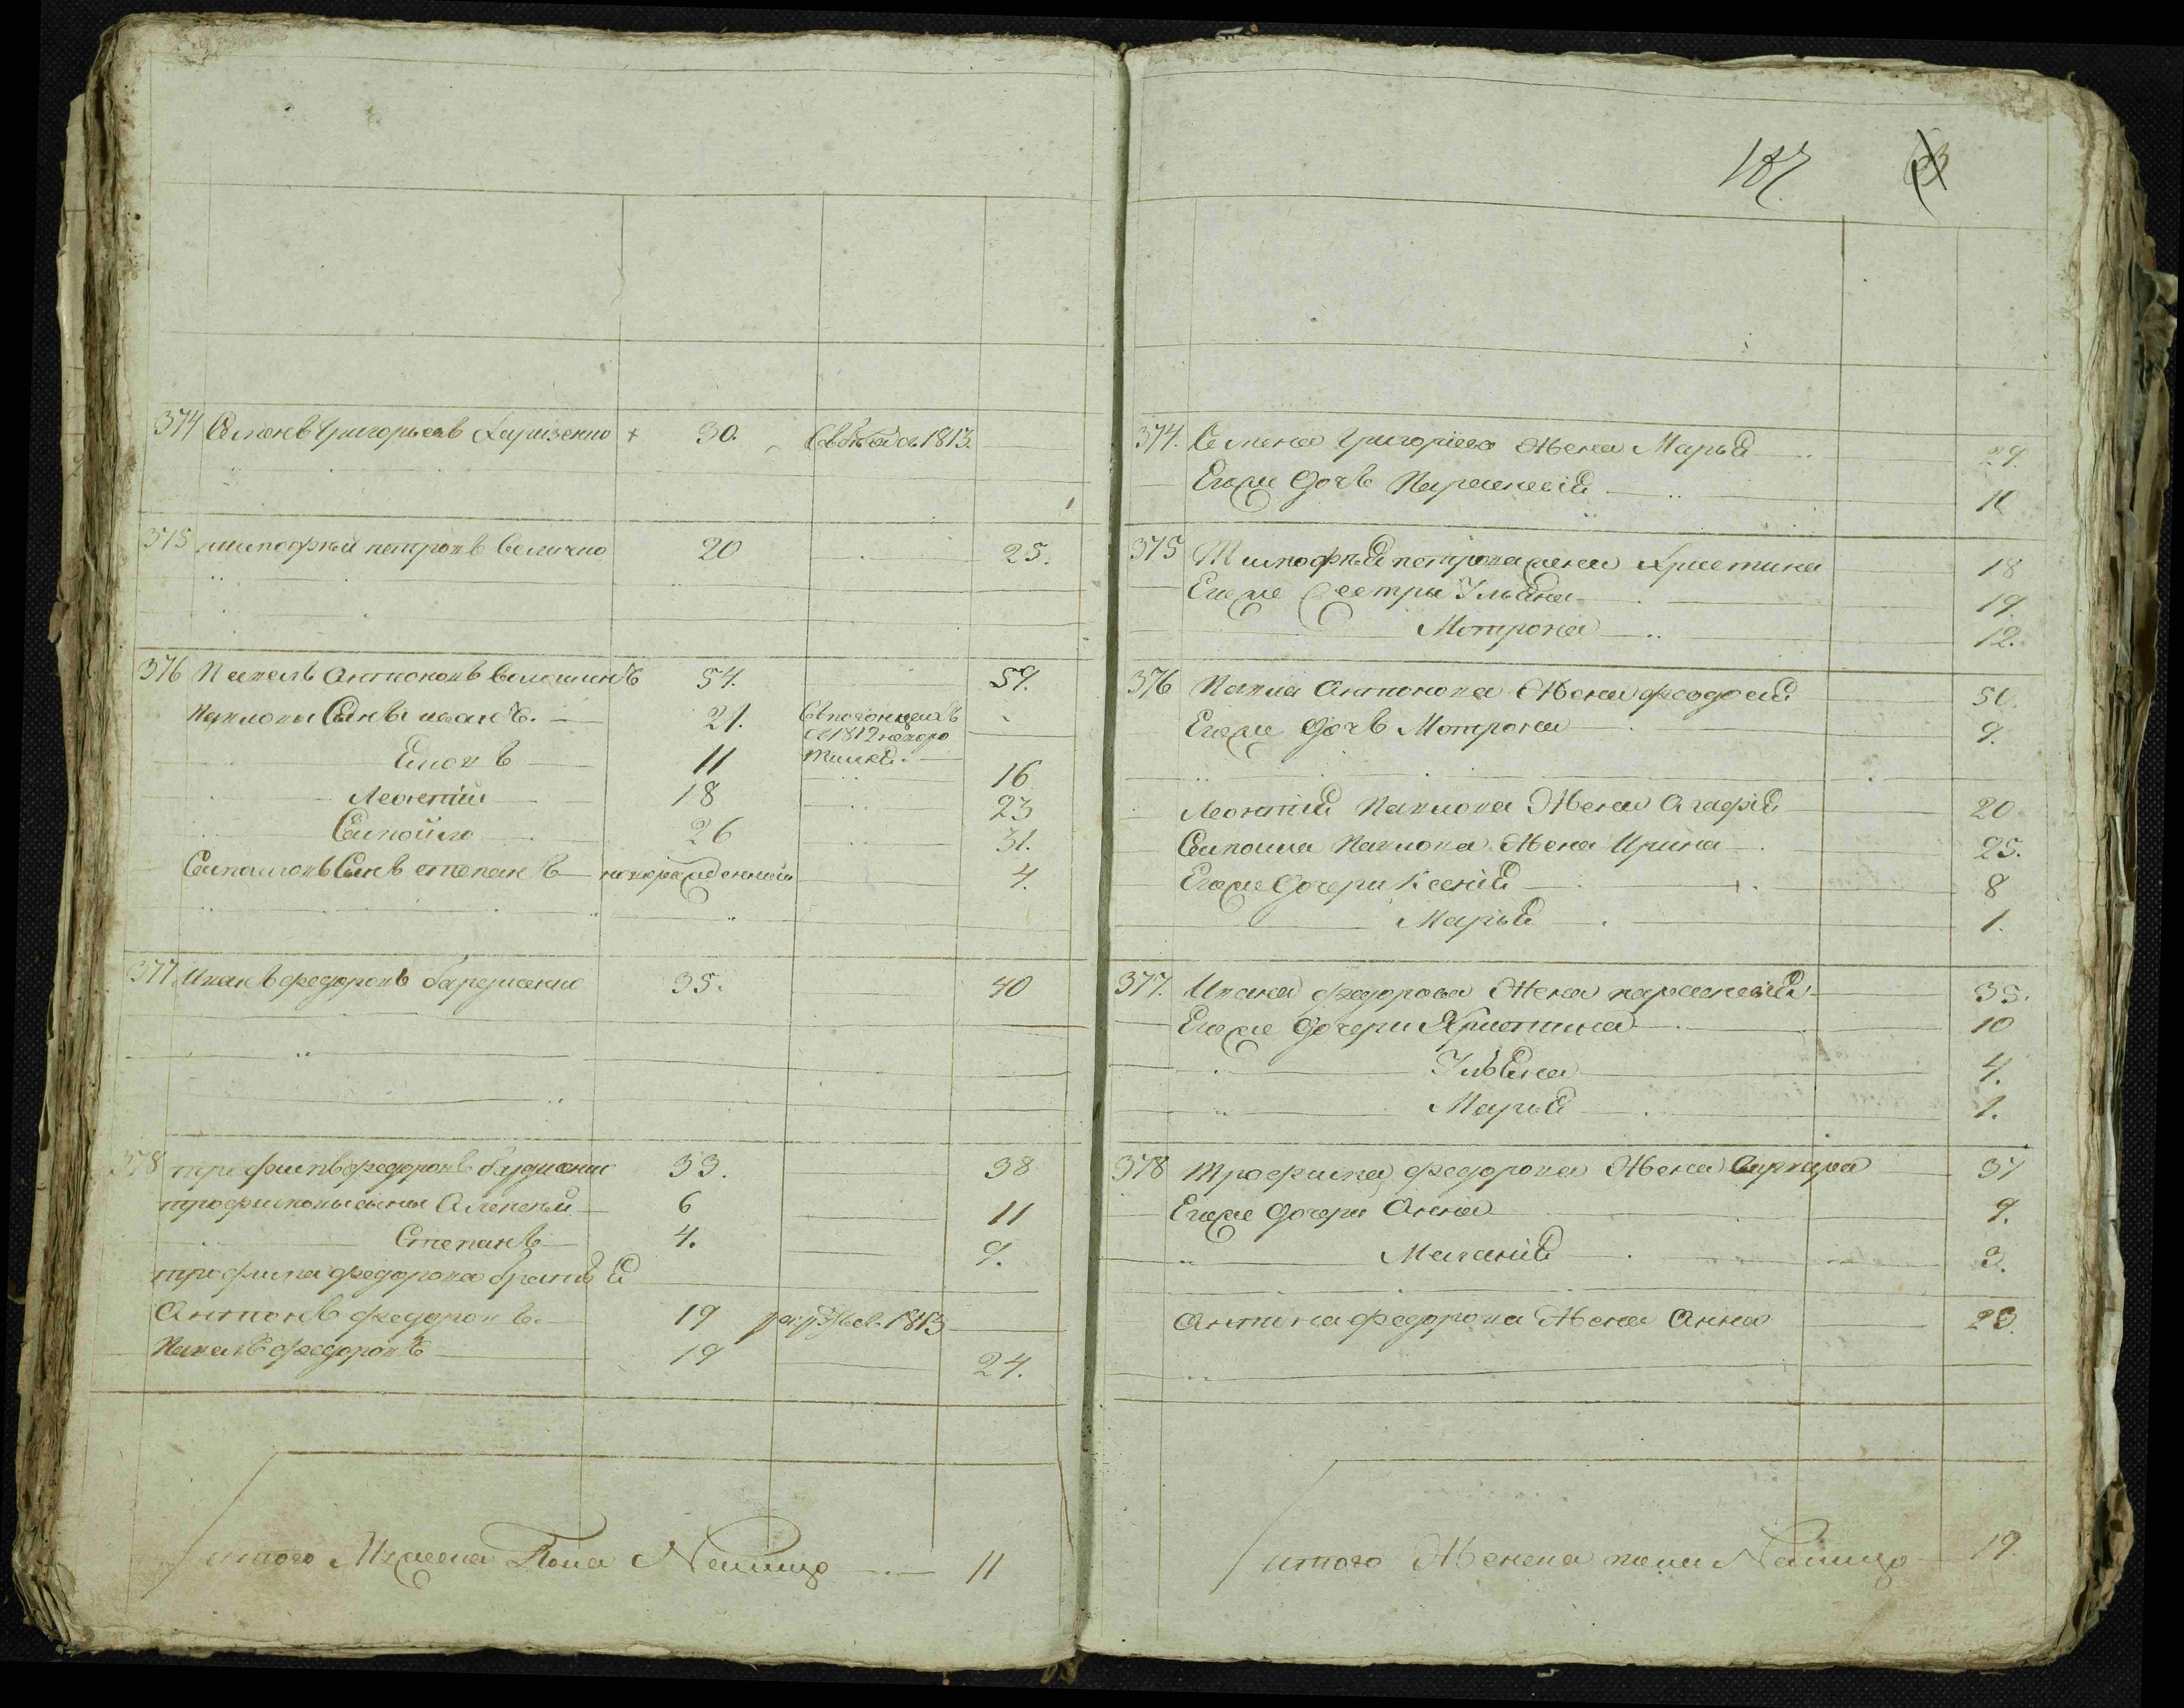 374 Семенъ Григорьевъ + 30. 1813
375 Тимофей петровъ величко 20 25.
376 Павелъ Антоновъ волошинъ 54. 59.
Павловы Сынъ иванъ. 21.
съ 1812 
11 16
Леонтий 18 23
Самойло 26 31.
Самойловъ Сынъ степанъ новорожденный 4.
377 Иванъ федоровъ 35. 40
378 трофимъ федоровъ 33. 38
трофимовы сыны Алексей 6 11
Степанъ 4. 9.
трофима федорова братья
Антонъ федоровъ. 19 1813
Павелъ федоровъ 19 24.
итого Мужеска Пола Налицо 11
187
374. Семена Григориева жена Марья 29.
Егоже дочь Параскевия 10
375 Тимофея петрова жена Христина 18
Егоже Сестры Ульяна 19.
Мотрона 12.
376 Павла Антонова жена феодосия 50.
Егоже дочь Мотрона 9.
Леонтия Павлова жена Агафия 20
Самойла Павлова жена Ирина 25.
Егоже дочери Ксения 8
Марья 1.
377. Ивана федорова жена параскевия 35.
Егоже дочери Христина 10
Ульяна 4.
Марья 1.
378 Трофима федорова жена Варвара 37
Егоже дочери Анна 9.
Мелания 3.
Антона федорова жена Анна 23.
итого Женска пола Налицо 19.